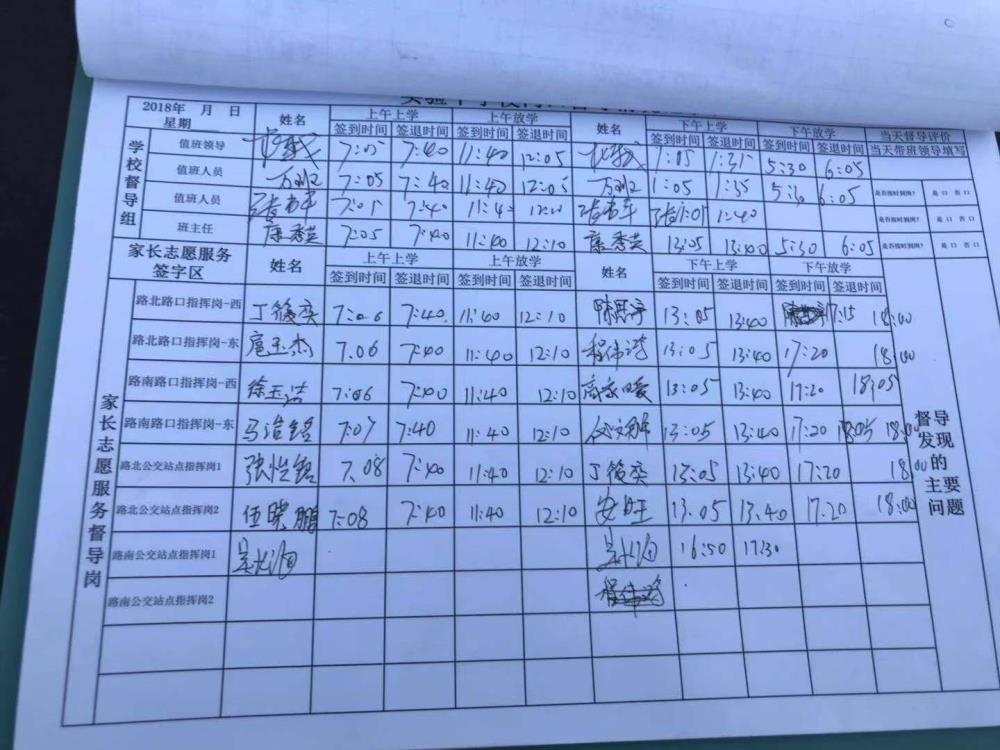 2018年 月 日 姓名 上午上学 上午放学 姓名 下午上学 下午放学 当天督导评价
星期 签到时间 签退时间 签到时间 签退时间 签到时间 签退时间 签到时间 签退时间 当天带班领导填写
学校督导组
值班领导 7:05 7:40 11:40 12:05 1:05 1:35 5:30 6:05
值班人员 7:05 7:40 11:40 12:05 1:05 1:35 5:30 6:05 是否按时到岗? 是 口 否 口
值班人员 7:05 7:40 11:40 1:05 1:40 是否按时到岗? 是 口 否 口
班主任 康秀英 7:05 7:40 11:40 12:10 康秀英 13:05 13:40 5:30 6:05 是否按时到岗? 是 口 否 口
家长志愿服务 姓名 上午上学 上午放学 姓名 下午上学 下午放学
签字区 签到时间 签退时间 签到时间 签退时间 签到时间 签退时间 签到时间 签退时间
家长志愿服务督导岗
路北路口指挥岗-西 丁筱奕 7:06 7:40 11:40 12:10 陈思宇 13:05 13:40 17:15 18:00
路北路口指挥岗-东 扈玉杰 7.06 7:40 11:40 12:10 13:05 13:40 17:20 18:00
路南路口指挥岗-西 徐玉洁 7:06 7:40 11:40 12:10 13:05 13:40 17:20 18:05
路南路口指挥岗-东 7:07 7:40 11:40 12:10 13:05 13:40 17:20 18:05 18:00
路北公交站点指挥岗1 7.08 7:40 11:40 12:10 丁筱奕 13:05 13:40 17:20 18:00
路北公交站点指挥岗2 伍晓鹏 7:08 7:40 11:40 12:10 安旺 13.05 13.40 17.20 18:00
路南公交站点指挥岗1 16:50 17:30
路南公交站点指挥岗2
督导
发现
的
主要
问题